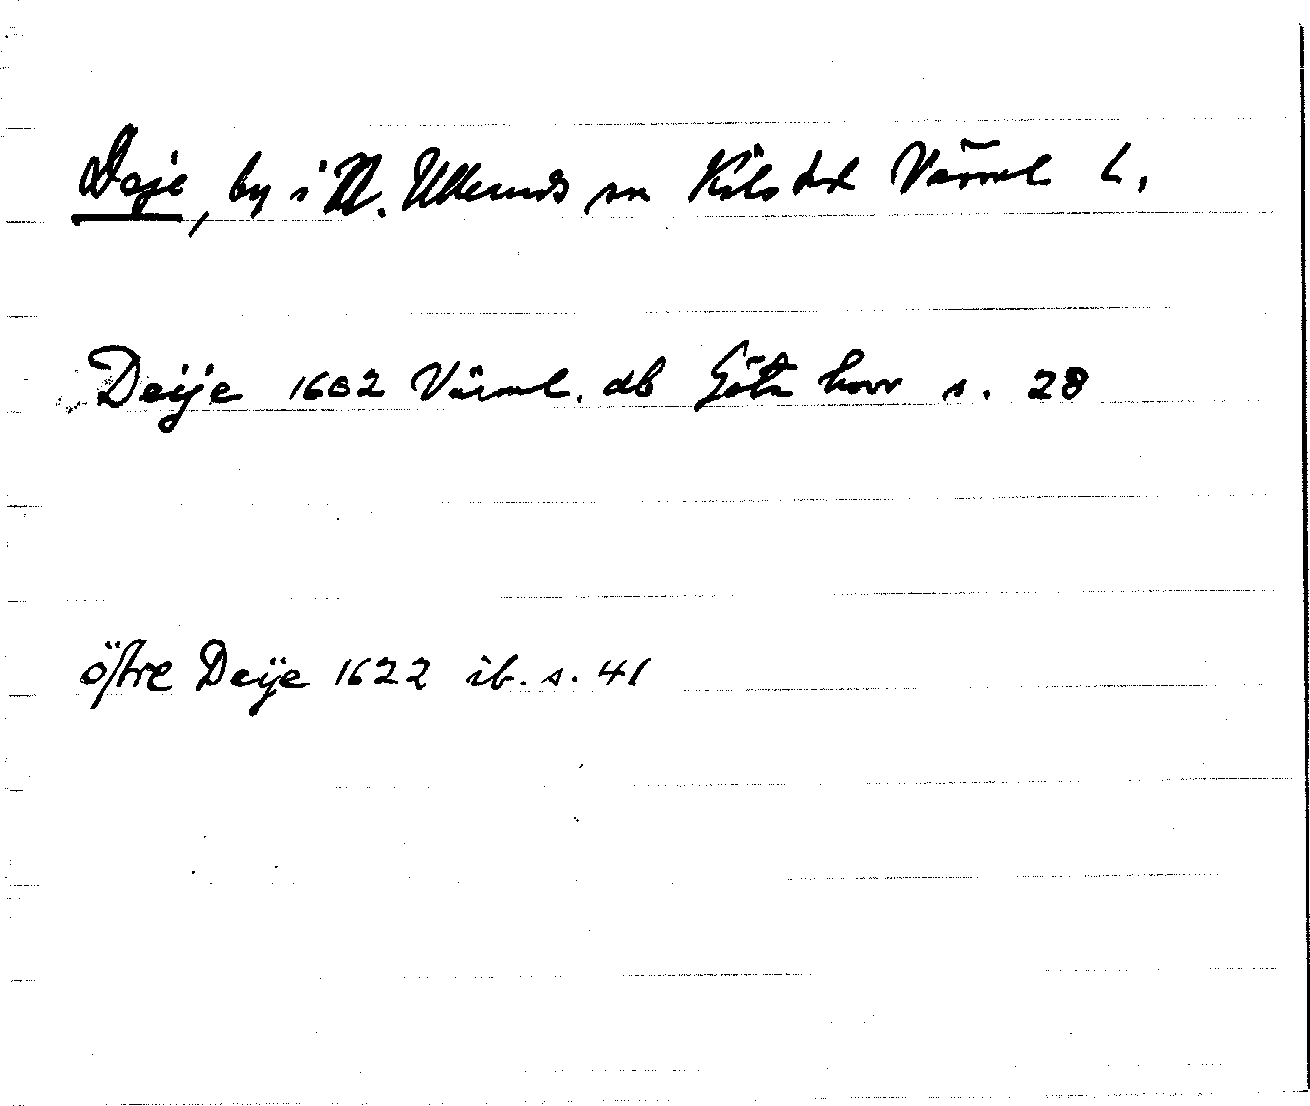 Deje, by i N. Ulleruds sn Kils hd Värml L.
Deije 1602 Värml. db Göta hovr s. 28
öfstre Deije 1622 ib. s. 41